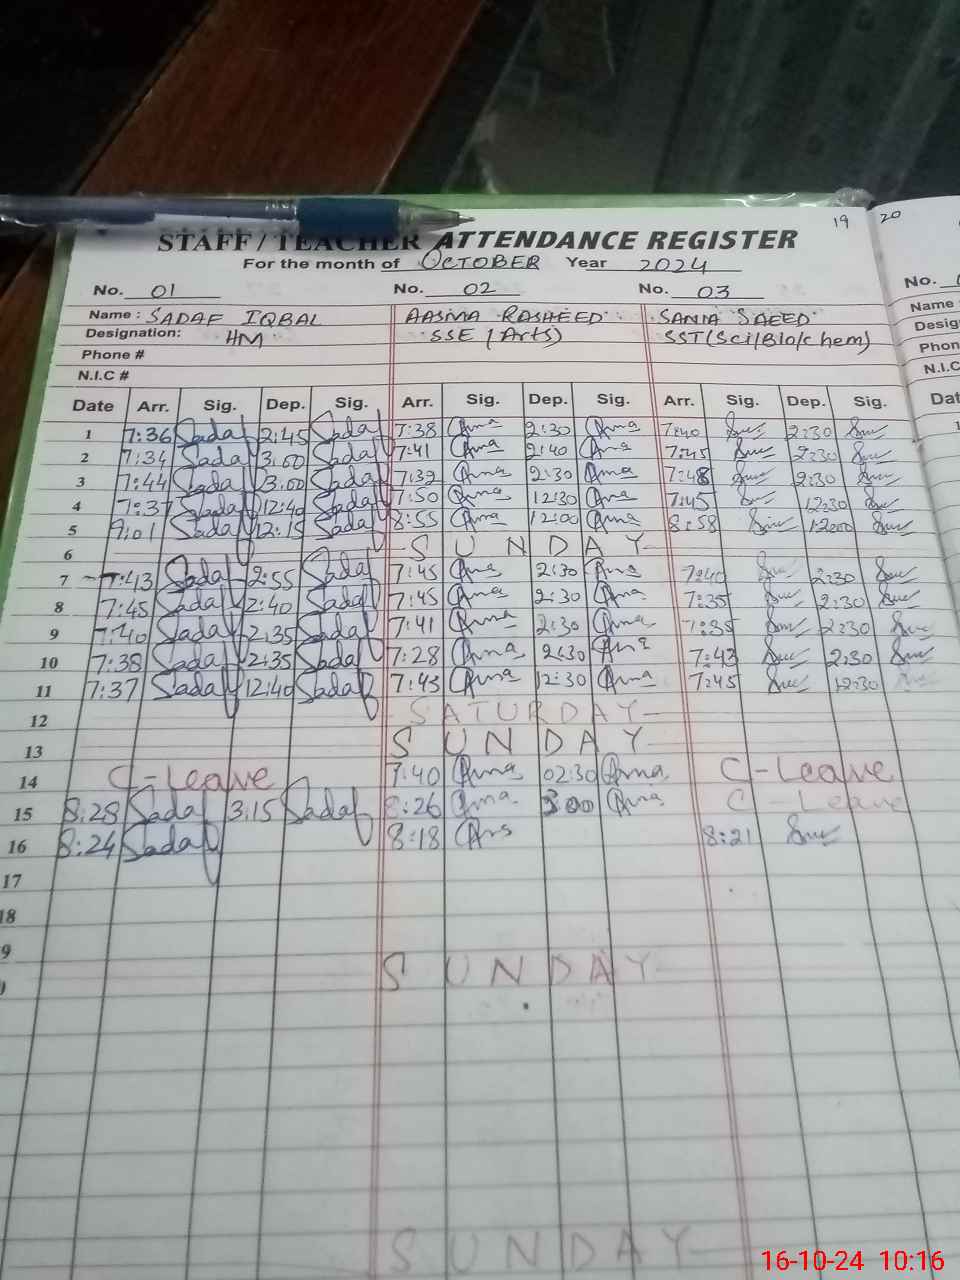 19 20
STAFF / TEACHER ATTENDANCE REGISTER
For the month of OCTOBER Year 2024
No. 01 No. 02 No. 03 No.
Name : SADAF IQBAL AASMA RASHEED SANIA SAEED Name
Designation: HM SSE (Arts) SST(Sci/Bio/chem) Desig
Phone # Phon
N.I.C # N.I.C
Date Arr. Sig. Dep. Sig. Arr. Sig. Dep. Sig. Arr. Sig. Dep. Sig. Dat
1 7:36 Sadaf 2:45 Sadaf 7:38 2:30 7:40 2:30
2 7:34 Sadaf 3:00 Sadaf 7:41 2:40 7:45 2:30
3 7:44 Sadaf 3:00 Sadaf 7:39 2:30 7:48 2:30
4 7:37 Sadaf 12:40 Sadaf 7:50 12:30 7:45 12:30
5 9:01 Sadaf 12:15 Sadaf 8:55 12:00 8:58 12:00
6 SUNDAY
7 7:43 Sadaf 2:55 Sadaf 7:45 2:30 7:40 2:30
8 7:45 Sadaf 2:40 Sadaf 7:45 2:30 7:35 2:30
9 7:40 Sadaf 2:35 Sadaf 7:41 2:30 7:35 2:30
10 7:38 Sadaf 2:35 Sadaf 7:28 2:30 7:43 2:30
11 7:37 Sadaf 12:40 Sadaf 7:45 12:30 7:45 12:30
12 SATURDAY
13 SUNDAY
14 C-Leave 7:40 02:30 C-Leave
15 8:28 Sadaf 3:15 Sadaf 8:26 3:00 C-Leave
16 8:24 Sadaf 8:18 8:21
17
18
9
SUNDAY
SUNDAY
16-10-24 10:16